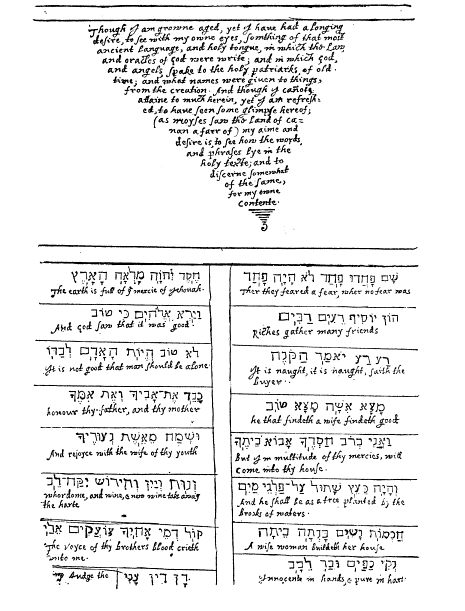 Though J am growne aged, yet J haue had a longing
desire, to see with my owne eyes, somthing of that most
ancient language, and holy tongue, in which the Law
and oracles of God were write; and in which God,
and angels, spake to the holy patriarks, of old
time; and what names were giuen to things,
from the creation. And though J cañote
attaine to much herein, yet J am refresh-
ed, to haue seen some glimpse hereof;
(as moyses saw the land of ca-
nan a farr of) my aime and
desire is, to see how the words,
and phrases lye in the
holy texte; and to
discerne somewhat
of the same,
for my owne
contente.
חֶסֶד יְהֹוָה מָלְאָה הָאָרֶץ
The earth is full of yͤ mercie of Jehouah.
וַיַּרְא אֱלֹהִים כִּי טוֹב
And God saw that it was good
לֹא טוֹב הֱיוֹת הָאָדָם לְבַדּוֹ
Jt is not good that man should be alone
כַּבֵּד אֶת־אָבִיךָ וְאֶת אִמֶּךָ
honour thy father, and thy mother
וּשְׂמַח מֵאֵשֶׁת נְעוּרֶיךָ
And rejoyce with the wife of thy youth
זְנוּת וְיַיִן וְתִירוֹשׁ יִקַּח־לֵב
whordome, and wine, & new wine take away
the harte
קוֹל דְּמֵי אָחִיךָ צֹעֲקִים אֵלַי
The voyce of thy brothers blood crieth
unto me.
Judge the
דָּן דִּין עָנִי
שָׁם פָּחֲדוּ פַחַד לֹא הָיָה פָחַד
Ther they feared a fear, wher no fear was
הוֹן יוֹסִיף רֵעִים רַבִּים
Riches gather many friends
רַע רַע יֹאמַר הַקּוֹנֶה
Jt is naught, it is naught, saith the
buyer.
מָצָא אִשָּׁה מָצָא טוֹב
he that findeth a wife findeth good
וַאֲנִי בְּרֹב חַסְדְּךָ אָבוֹא בֵיתֶךָ
But J in multitude of thy mercies, will
come into thy house.
וְהָיָה כְּעֵץ שָׁתוּל עַל־פַּלְגֵי מָיִם
And he shall be as a tree planted by the
brooks of waters.
חַכְמוֹת נָשִׁים בָּנְתָה בֵיתָהּ
A wise woman buildeth her house
נְקִי כַפַּיִם וּבַר לֵבָב
Jnnocente in hands, & pure in hart.